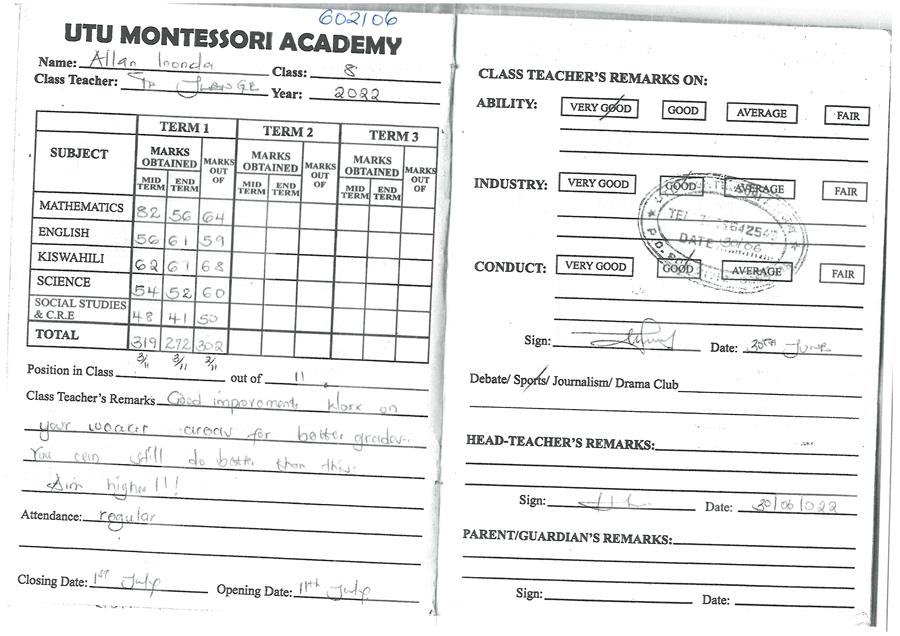 602/06
UTU MONTESSORI ACADEMY
Name: Allan Inonda Class: 8
Class Teacher: Year: 2022
TERM 1 TERM 2 TERM 3
SUBJECT MARKS OBTAINED MARKS OUT OF MARKS OBTAINED MARKS OUT OF MARKS OBTAINED MARKS OUT OF
MID TERM END TERM MID TERM END TERM MID TERM END TERM
MATHEMATICS 82 56 64
ENGLISH 56 61 59
KISWAHILI 62 61 68
SCIENCE 54 52 60
SOCIAL STUDIES
& C.R.E 48 41 50
TOTAL 319 272 302
3/11 3/11 2/11
Position in Class out of 11
Class Teacher's Remarks Good improvement. Work on
your weaker areas for better grades.
You can still do better than this.
Aim higher!!!
Attendance: regular
Closing Date: 1st July Opening Date: 11th July
CLASS TEACHER'S REMARKS ON:
ABILITY: VERY GOOD GOOD AVERAGE FAIR
INDUSTRY: VERY GOOD GOOD AVERAGE FAIR
TEL
DATE 30/06
CONDUCT: VERY GOOD GOOD AVERAGE FAIR
Sign: Date: 30th June
Debate/ Sports/ Journalism/ Drama Club
HEAD-TEACHER'S REMARKS:
Sign: Date: 30/06/022
PARENT/GUARDIAN'S REMARKS:
Sign: Date: